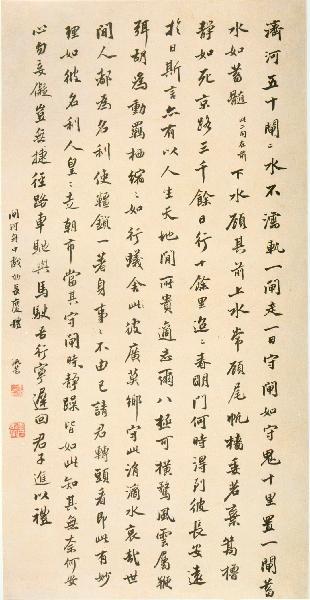 濟河五十閘〻水不濡軌一閘走一日守閘如守鬼十里置一閘蓄
水如蓄髓此二句在前下水顧其前上水常顧尾帆檣委若棄篙櫓
靜如死京路三千餘日行十餘里迢〻春明門何時得到彼長安遠
於日斯言亦有以人生天地間所貴適志爾八極可橫騖風雲屬鞭
弭胡為動羈栖縮〻如行蟻舍此彼廣莫鄉守此涓滴水哀哉世
間人都為名利使韁鎖一著身事〻不由己請君轉頭看即此有妙
理如彼名利人皇〻走朝市當其守閘時靜躁皆如此知其無奈何安
心勿妄儗豈無捷徑路車馳與馬駛吾行寧遲回君子進以禮
閘河舟中戲効長慶體